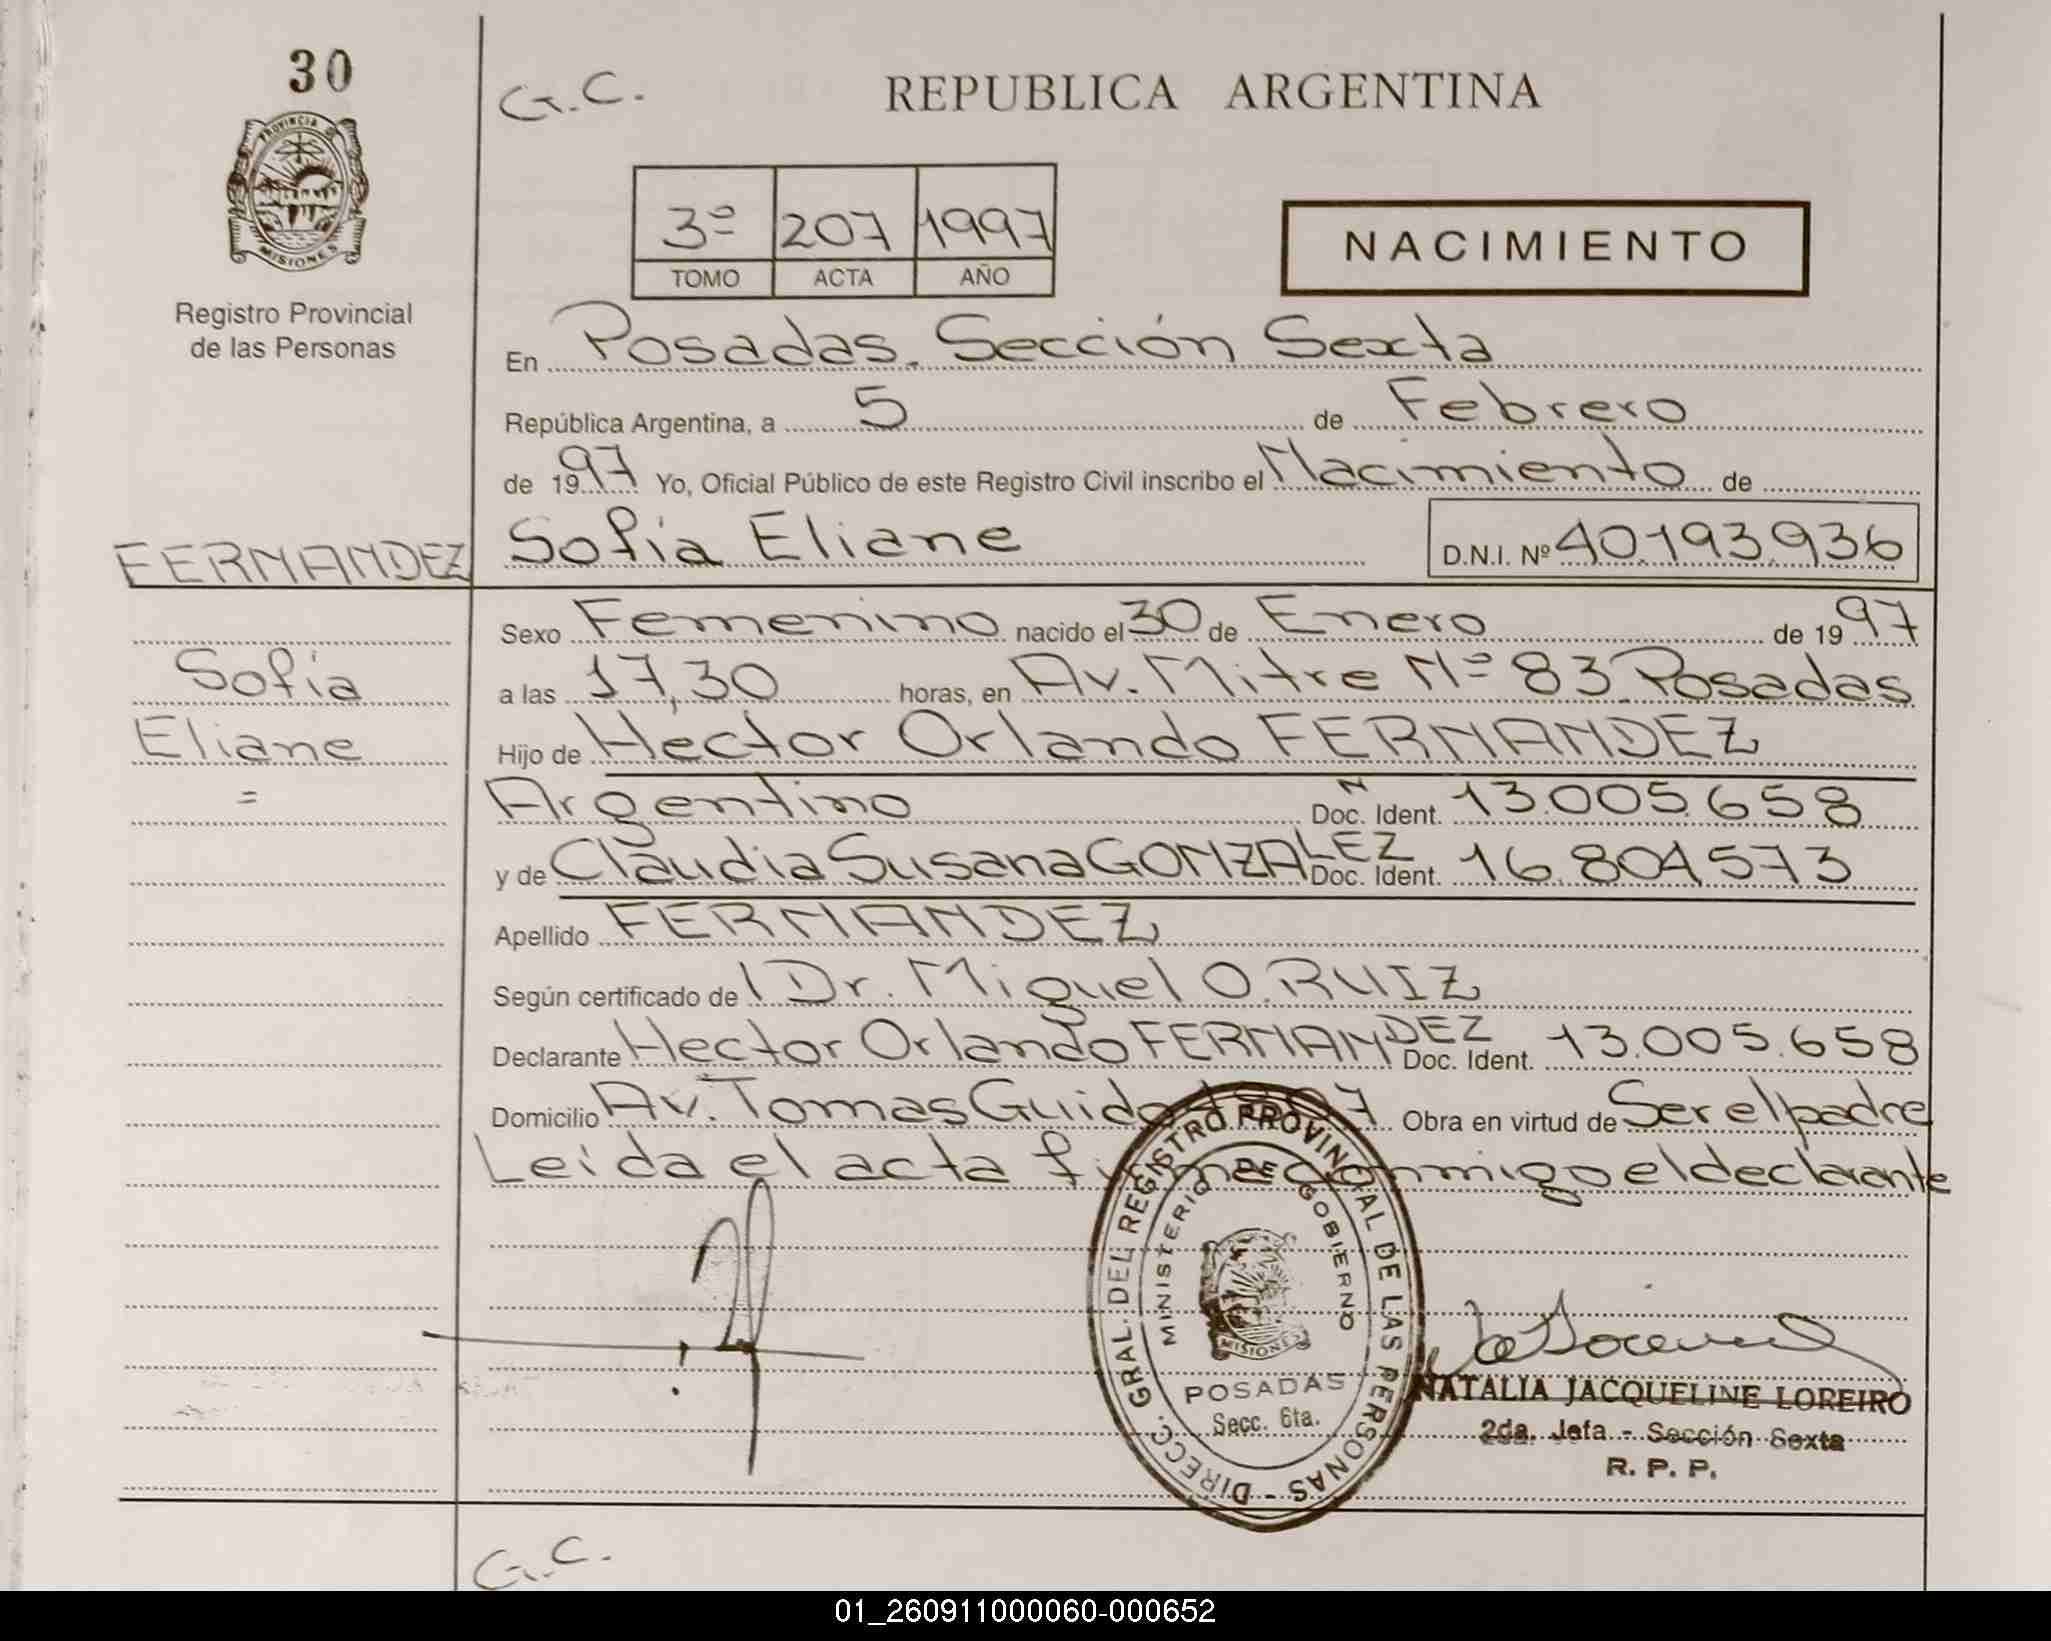 30
G.C.
REPUBLICA ARGENTINA
PROVINCIA DE
MISIONES
Registro Provincial
de las Personas
3º 207 1997
TOMO ACTA AÑO
NACIMIENTO
En Posadas. Sección Sexta
República Argentina, a 5 de Febrero
de 1997 Yo, Oficial Público de este Registro Civil inscribo el Nacimiento de
FERNANDEZ
Sofía Eliane D.N.I. Nº 40.193.936
Sofía
Eliane
=
Sexo Femenino nacido el 30 de Enero de 1997
a las 17,30 horas, en Av. Mitre Nº 83 Posadas
Hijo de Hector Orlando FERNANDEZ
Argentino Doc. Ident. 13.005.658
y de Claudia Susana GONZALEZ Doc. Ident. 16.804.573
Apellido FERNANDEZ
Según certificado de Dr. Miguel O. RUIZ
Declarante Hector Orlando FERNANDEZ Doc. Ident. 13.005.658
Domicilio Av. Tomas Guido Obra en virtud de Ser el padre
Leída el acta firma conmigo el declarante
DIRECC. GRAL. DEL REGISTRO PROVINCIAL DE LAS PERSONAS -
MINISTERIO DE GOBIERNO
MISIONES
POSADAS
Secc. 6ta.
NATALIA JACQUELINE LOREIRO
2da. Jefa - Sección Sexta
R. P. P.
G.C.
01_260911000060-000652